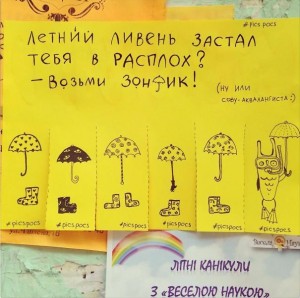 #picspocs
ЛЕТНИЙ ЛИВЕНЬ ЗАСТАЛ
ТЕБЯ В РАСПЛОХ?
– ВОЗЬМИ ЗОНТИК!
(НУ ИЛИ
СОВУ-АКВАЛАНГИСТА :)
#picspocs
#picspocs
#picspocs
#picspocs
#picspocs
#picspocs
ЛІТНІ КАНІКУЛИ
З «ВЕСЕЛОЮ НАУКОЮ»